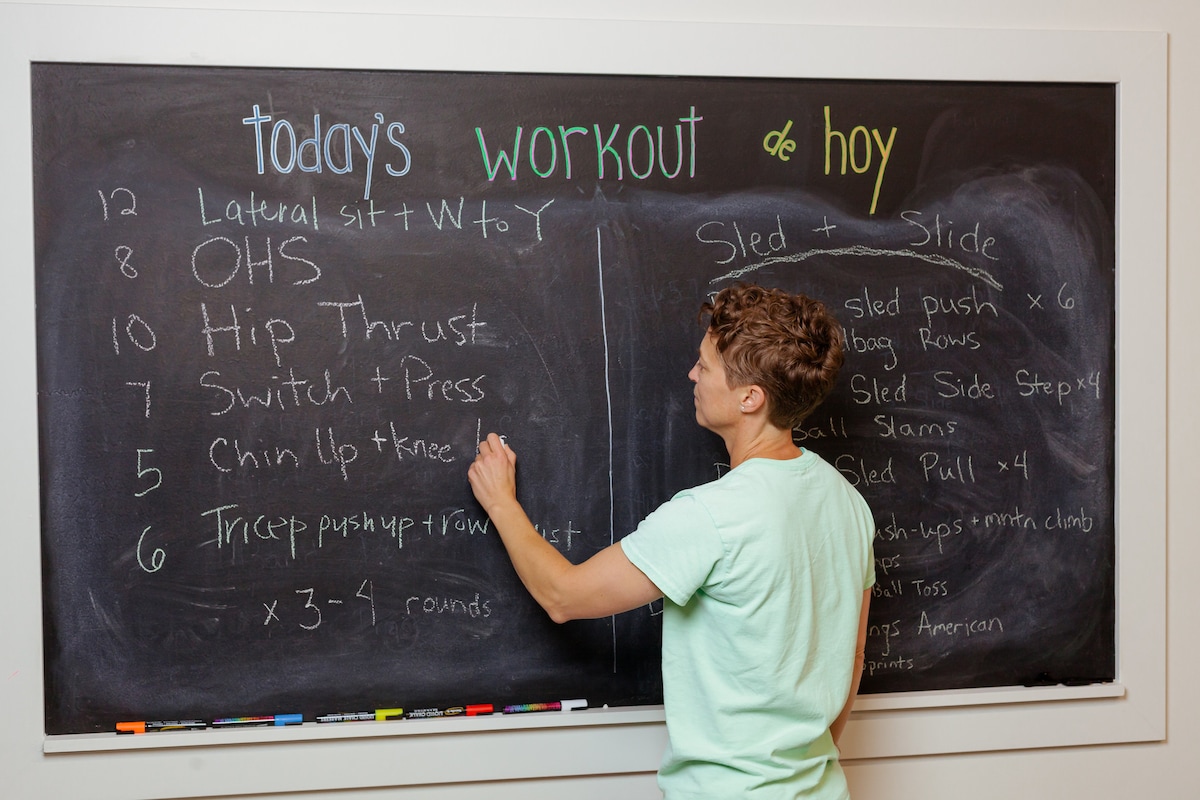 today's workout de hoy
12 Lateral sit + W to Y
8 OHS
10 Hip Thrust
7 Switch + Press
5 Chin Up + knee
6 Tricep push up + row
x 3-4 rounds
Sled + Slide
sled push x 6
Rows
Sled Side Step x4
Slams
Sled Pull x4
+ mntn climb
Ball Toss
American